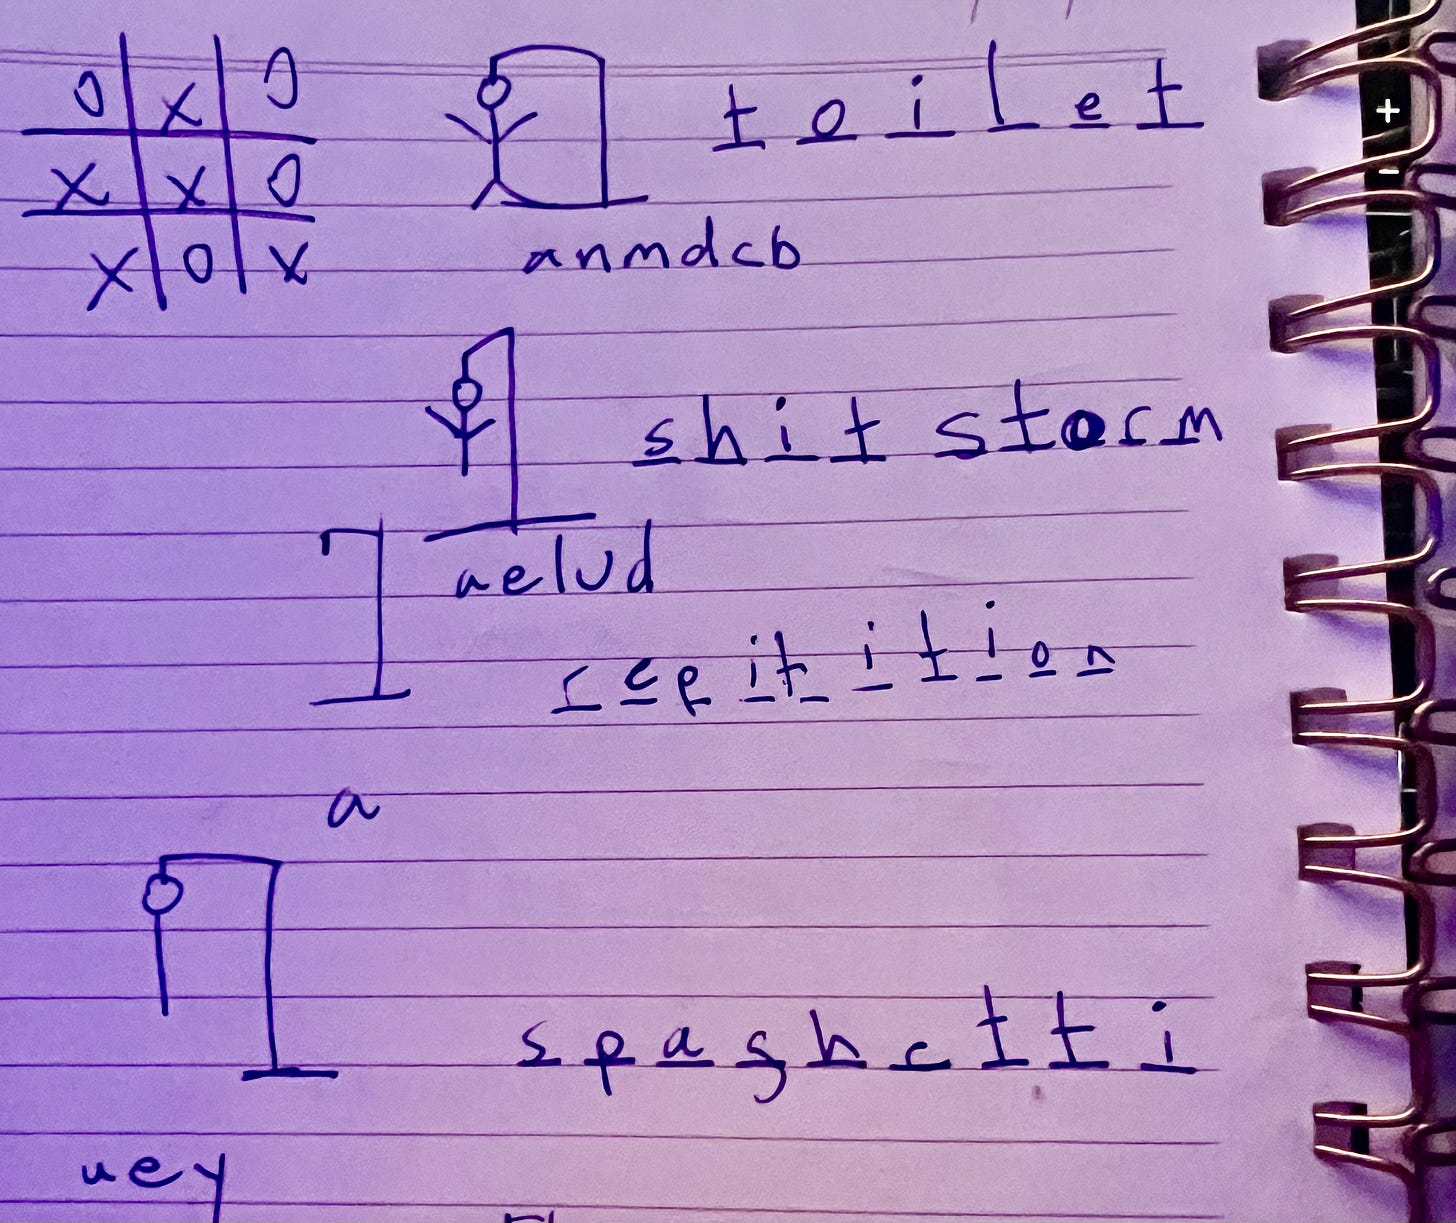 O X O
X X O
X O X
toilet
anmdcb
shit storm
aelud
repitition
a
spaghetti
uey